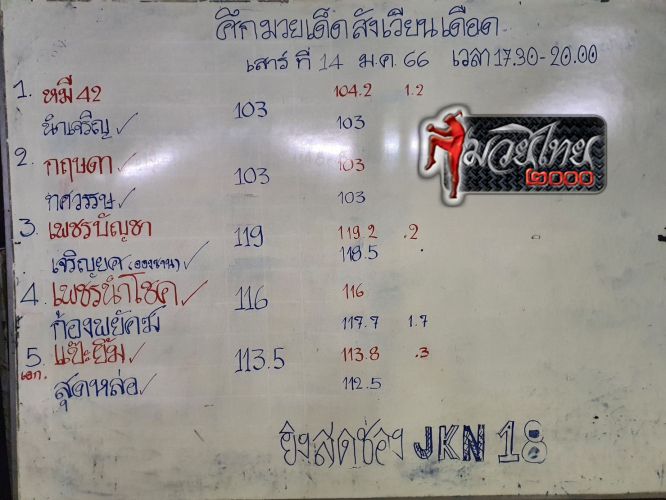 ศึกมวยเด็ดสังเวียนเดือด
เสาร์ ที่ 14 ม.ค. 66 เวลา 17.30-20.00
1. หมี 42 104.2 1.2
103
นำเจริญ ✓ 103
มวยไทย
๒๐๐๐
2. กฤษดา ✓ 103
103
ทศวรรษ ✓ 103
3. เพชรบัญชา 119.2 .2
119
เจริญยศ (องอาจ) ✓ 118.5
4. เพชรนำโชค ✓ 116
116
ก้องพยัคฆ์ 117.7 1.7
5. แป๊ะยิ้ม ✓ 113.8 .3
เอก. 113.5
สุดหล่อ ✓ 112.5
ยิงสดช่อง JKN 18